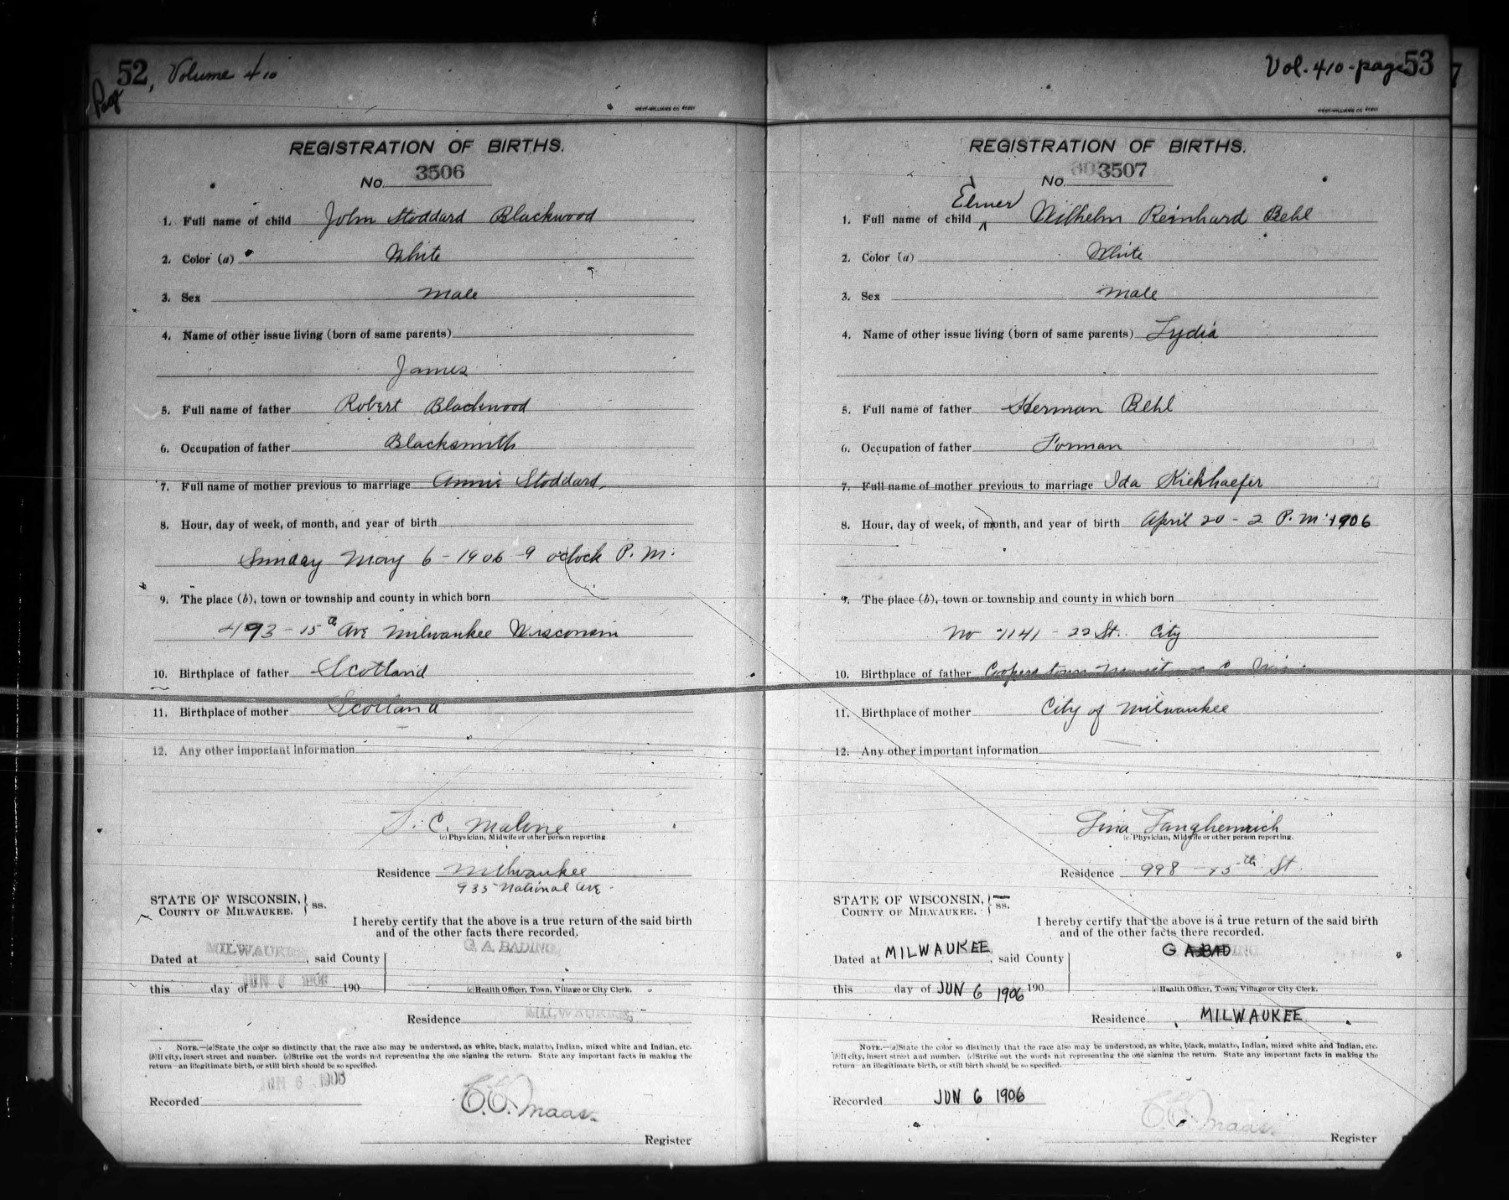 52, Volume 410
Page
REGISTRATION OF BIRTHS.
No. 3506
1. Full name of child John Stoddard Blackwood
2. Color (a) White
3. Sex Male
4. Name of other issue living (born of same parents)
James
5. Full name of father Robert Blackwood
6. Occupation of father Blacksmith
7. Full name of mother previous to marriage Annie Stoddard,
8. Hour, day of week, of month, and year of birth
Sunday May 6 - 1906 9 oclock P. M.
9. The place (b), town or township and county in which born
493 - 15th Ave Milwaukee Wisconsin
10. Birthplace of father Scotland
11. Birthplace of mother Scotland
12. Any other important information
C. Malone
(c) Physician, Midwife or other person reporting.
Residence Milwaukee
935 National Ave.
STATE OF WISCONSIN, } ss.
COUNTY OF MILWAUKEE.
I hereby certify that the above is a true return of the said birth
and of the other facts there recorded.
MILWAUKEE G. A. BADING,
Dated at , said County
this day of JUN 6 1906 190
(c) Health Officer, Town, Village or City Clerk.
Residence MILWAUKEE,
NOTE.—(a) State the color so distinctly that the race also may be understood, as white, black, mulatto, Indian, mixed white and Indian, etc.
(b) If city, insert street and number. (c) Strike out the words not representing the one signing the return. State any important facts in making the
return—an illegitimate birth, or still birth should be so specified.
JUN 6 1906
Recorded
Maas.
Register
Vol. 410 - page 53
REGISTRATION OF BIRTHS.
No. 3507
Elmer
1. Full name of child ^ Wilhelm Reinhard Behl
2. Color (a) White
3. Sex Male
4. Name of other issue living (born of same parents) Lydia
5. Full name of father Herman Behl
6. Occupation of father Forman
7. Full name of mother previous to marriage Ida Kiekhaefer
8. Hour, day of week, of month, and year of birth April 20 - 2 P. M. 1906
9. The place (b), town or township and county in which born
No 1141 - 22 St. City
10. Birthplace of father Cooperstown
11. Birthplace of mother City of Milwaukee
12. Any other important information
(c) Physician, Midwife or other person reporting.
Residence 998 - 15th St
STATE OF WISCONSIN, } ss.
COUNTY OF MILWAUKEE.
I hereby certify that the above is a true return of the said birth
and of the other facts there recorded.
Dated at MILWAUKEE, said County
this day of JUN 6 1906 190
(c) Health Officer, Town, Village or City Clerk.
Residence MILWAUKEE
NOTE.—(a) State the color so distinctly that the race also may be understood, as white, black, mulatto, Indian, mixed white and Indian, etc.
(b) If city, insert street and number. (c) Strike out the words not representing the one signing the return. State any important facts in making the
return—an illegitimate birth, or still birth should be so specified.
Recorded JUN 6 1906
Maas.
Register